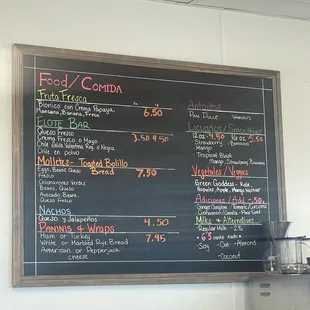 Food/Comida
Fruta Fresca
Bionico con Crema Papaya,
Montana, Banana, Fresa
6.50
Elote Bar
Queso Fresco
Crema Fresco o Mayo
Chile Salsa Valentina Roj. o Negra
Chile en polvo
3.50 4.50
Molletes - Toasted Bolillo
Bread 7.50
Eggs, Beans Queso
Fresco
Chicharrones Verdes
Beans, Queso
Avocado, Beans,
Queso Fresco
Nachos
Queso y Jalapeños 4.50
Paninis & Wraps
Ham or Turkey 7.95
White or Marbled Rye Bread
American or Pepperjack
cheese
Antojitos
Pan Dulce
Licuados/Smoothies
12 oz 4.50 16 oz 5.50
Strawberry - Banana
Mango
Tropical Blast
Mango, Strawberry, Banana
Vegetales/Veggies
Green Goddess - Kale,
Nopales, Apple, Mango Nectar
Adiciones/Add .50¢
Ginger
Cinnamon
Milks & Alternatives
Regular Milk - 2%
Soy - Oat - Almond
- Coconut